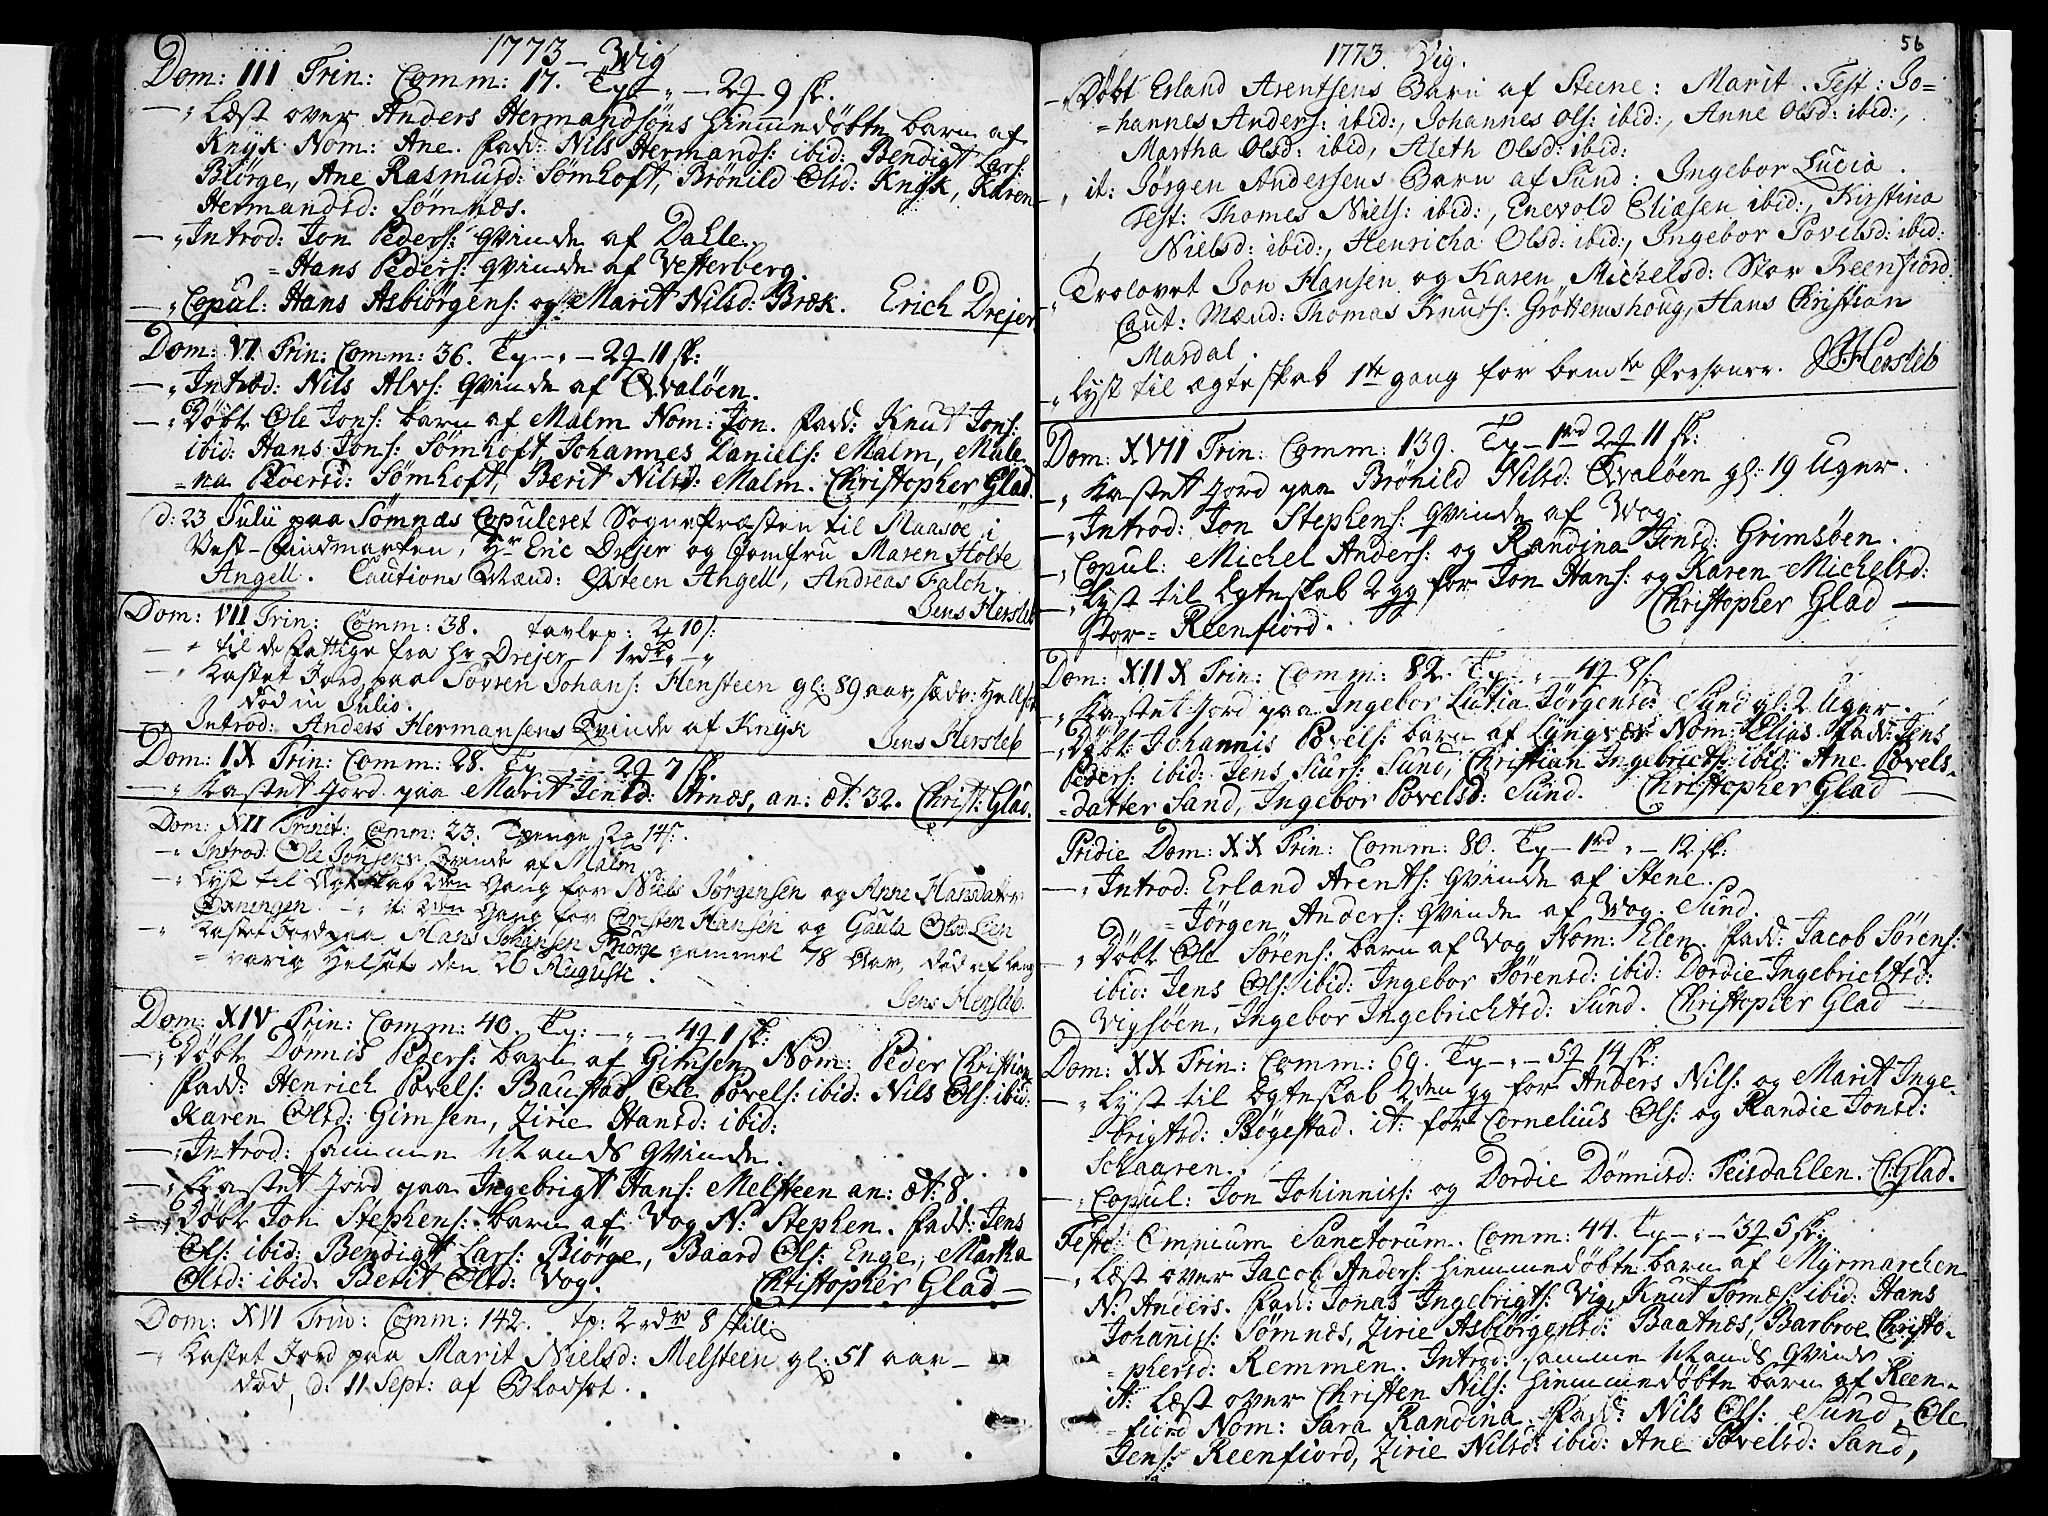 1773 – Wig
Dom: III Trin: Comm: 17. Tp – „ – 2 9 sk.
„ Læst over Anders Hermandsøns hiemmedøbte barn af
Knÿk Nom: Ane. Fadd: Nils Hermands: ibid: Bendigt Lars:
Biörge, Ane Rasmusd: Sömhoft, Brönild Olsd: Knÿk, Karen
Hermandsd: Sömnæs.
„ Introd: Jon Peders: Qvinde af Dahle.
= Hans Peders: Qvinde af Vesterberg.
„ Copul: Hans Asbiörgens: og Marit Nilsd: Bræk. Erich Drejer
Dom: VI Trin: Comm: 36. Tp – „ – 2 11 sk:
„ Introd: Nils Alvs: Qvinde af Qvalöen.
„ Döbt Ole Jons: barn af Malm Nom: Jon. Fadd: Knut Jons:
ibid: Hans Jons: Sömhoft, Johannes Daniels: Malm, Male
=na Sömhoft, Berit Nilsd: Malm. Christopher Glad.
d: 23 Julii paa Sömnæs Copuleret Sognepræsten til Maasöe i
Vest-Findmarken, Hr Eric Drejer og Jomfru Maren Holte
Angell. Cautions Mænd: Østeen Angell, Andreas Falch.
Jens Hersleb
Dom: VII Trin: Comm: 38. Tavlep: 2 10 s:
„ til de Fattige fra Hr Drejer 1 rdr „ – „
„ Kastet Jord paa Søvren Johans: Hensteen gl: 89 aar,
död in Julio.
„ Introd: Anders Hermansens Qvinde af Knÿk
Jens Hersleb
Dom: IX Trin: Comm: 28. Tp – „ – 2 7 sk.
„ Kastet Jord paa Marit Jensd: Arnæs, an: æt: 32. Christ: Glad.
Dom: XII Trinit: Comm: 23. Tpenge 2 14 s.
„ Introd: Ole Jonsens Qvinde af Malm
„ Lyst til Ægteskab 2den Gang for Niels Jörgensen og Anne Hansdater
it: 2den Gang for Christen Hansen og Gaula Olsd Lien
„ Kastet Jord paa Hans Johansen Biörge gammel 78 Aar, död af lang
= varig Helsot den 26 Augusti.
Jens Hersleb.
Dom: XIV Trin: Comm: 40. Tp: – „ – 4 1 sk:
„ Döbt Dönnis Peders: barn af Gimsen, Nom: Peder Christian
Fadd: Henrich Povels: Baustad, Ole Povels: ibid: Nils Ols: ibid:
Karen Olsd: Gimsen, Zirie Hansd: ibid:
„ Introd: samme Mands Qvinde.
„ Kastet Jord paa Ingebrigt Hans: Melsteen an: æt: 8.
„ Döbt Jon Stephens: barn af Vog N: Stephen. Fadd: Jens
Ols: ibid: Bendigt Lars: Biörge, Baard Ols: Enge, Martha
Olsd: ibid: Berit Olsd: Vog. Christopher Glad –
Dom: XVI Trin: Comm: 142. tp: 2 rdr 8 skill:
„ Kastet Jord paa Marit Nielsd: Melsteen gl: 51 aar –
död, d: 11 Sept: af Blodsot.
56
1773. Vig.
„ Döbt Erland Arentsens Barn af Steene: Marit. Test: Jo=
=hannes Anders: ibid:, Johannes Ols: ibid:, Anne Olsd: ibid:,
Martha Olsd: ibid, Aleth Olsd: ibid:
„ it: Jörgen Andersens Barn af Sund: Ingebor Lucia.
Test: Thomes Niels: ibid:, Enevold Eliasen ibid:, Kirstina
Nielsd: ibid:, Henricha Olsd: ibid:, Ingebor Povelsd: ibid:
„ Trolovet Jon Hansen og Karen Michelsd: Stor Reenfiord.
Caut: Mænd: Thomas Knuts: Gröttemshoug, Hans Christian
Mardal.
„ Lyst til ægteskab 1te gang for bemte Personer. Hersleb
Dom: XVII Trin: Comm: 139. Tp – 1 rd 2 11 sk:
„ Kastet Jord paa Brönild Nilsd: Qvalöen gl: 19 Uger.
„ Introd: Jon Stephens: Qvinde af Vog.
„ Copul: Michel Anders: og Randina Jensd: Grimsöen.
„ Lyst til Egteskab 2 gg for Jon Hans: og Karen Michelsd:
Stor=Reenfiord. Christopher Glad –
Dom: XIIX Trin: Comm: 82. Tp – „ – 4 8 s.
„ Kastet Jord paa Ingebor Lucia Jörgensd: Sund gl: 2 Uger.
„ Döbt Johannis Povels: barn af Lyngvær Nom: Elias. Fadd: Jens
Peders: ibid: Jens Siurs: Sund, Christian Ingebricts: ibid: Ane Povels=
=datter Sand, Ingebor Povelsd: Sund. Christopher Glad –
Pridie Dom: XX Trin: Comm: 80. Tp – 1 rd „ – 12 sk:
„ Introd: Erland Arents: Qvinde af Stene.
= Jörgen Anders: Qvinde af Sund.
„ Döbt Ole Sörens: barn af Vog Nom: Elen. Fadd: Jacob Sörens:
ibid: Jens Ols: ibid: Ingebor Sörensd: ibid: Dordie Ingebrichtsd:
Vigsöen, Ingebor Ingebrichtsd: Sund. Christopher Glad –
Dom: XX Trin: Comm: 69. Tp – „ – 5 14 sk:
„ Lyst til Egteskab 2den gg for Anders Nils: og Marit Inge=
=brigtsd: Bögestad. it: for Cornelius Ols: og Randie Jonsd:
Schaaren.
„ Copul: Jon Johinnis: og Dordie Dönnisd: Teisdahlen. C: Glad.
Festo Omnium Sanctorum. Comm: 44. Tp – „ – 3 5 sk:
„ Læst over Jacob Anders: hiemmedöbte barn af Myrmarchen
N: Anders. Fadd: Jonas Ingebrigts: Vig, Knut Tomæs: ibid: Hans
Johanis: Sömnæs, Zirie Asbiörgensd: Baatnæs, Barbroe Christo=
=phersd: Remmen. Introd: samme Mands Qvinde
it: Læst over Christen Nils: hiemmedöbte barn af Reen=
=fiord Nom: Sara Randina. Fadd: Nils Ols: Sund, Ole
Jens: Reenfiord, Zirie Nilsd: ibid: Ane Povelsd: Sand,